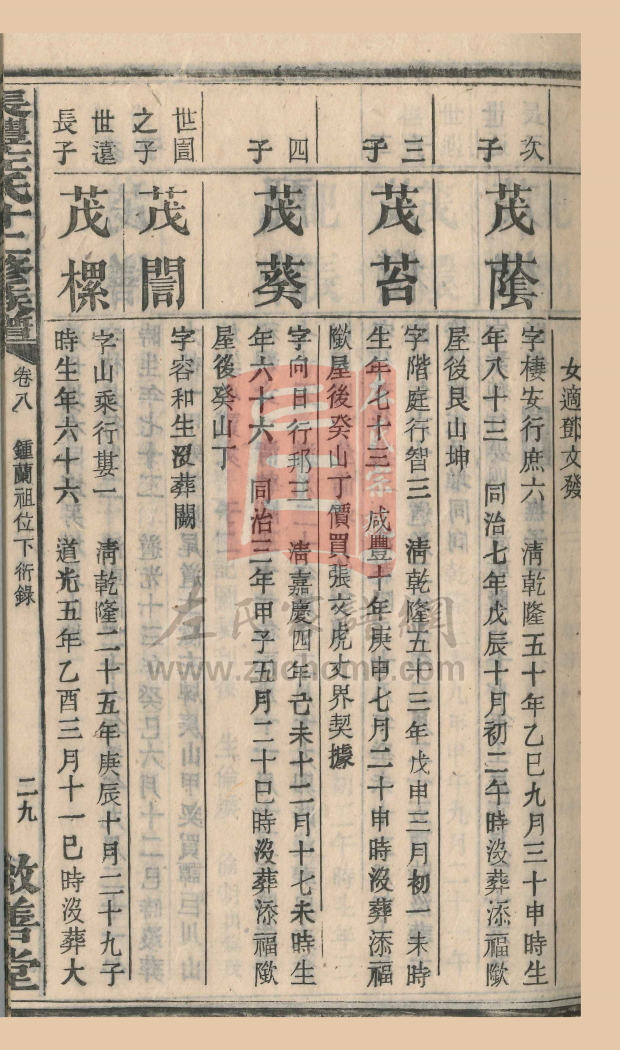 女適鄧文發
次子
茂蔭
字棲安行庶六 清乾隆五十年乙巳九月三十申時生
年八十三 同治七年戊辰十月初二午時沒葬添福歟
屋後艮山坤
三子
茂苔
字階庭行智三 清乾隆五十三年戊申三月初一未時
生年七十三 咸豐十年庚申七月二十申時沒葬添福
歟屋後癸山丁價買張文虎丈界契據
四子
茂葵
字向日行邦三二 清嘉慶四年己未十二月十七未時生
年六十六 同治三年甲子五月二十巳時沒葬添福歟
屋後癸山丁
世誾之子
茂誾
字容和生沒葬闕
世遠長子
茂樏
字山乘行婁一 清乾隆二十五年庚辰十月二十九子
時生年六十六 道光五年乙酉三月十一巳時沒葬大
長豐左氏十二修族譜
卷八 鍾蘭祖位下衍錄
二九
敦善堂
左氏家譜網
www.zuchome.com